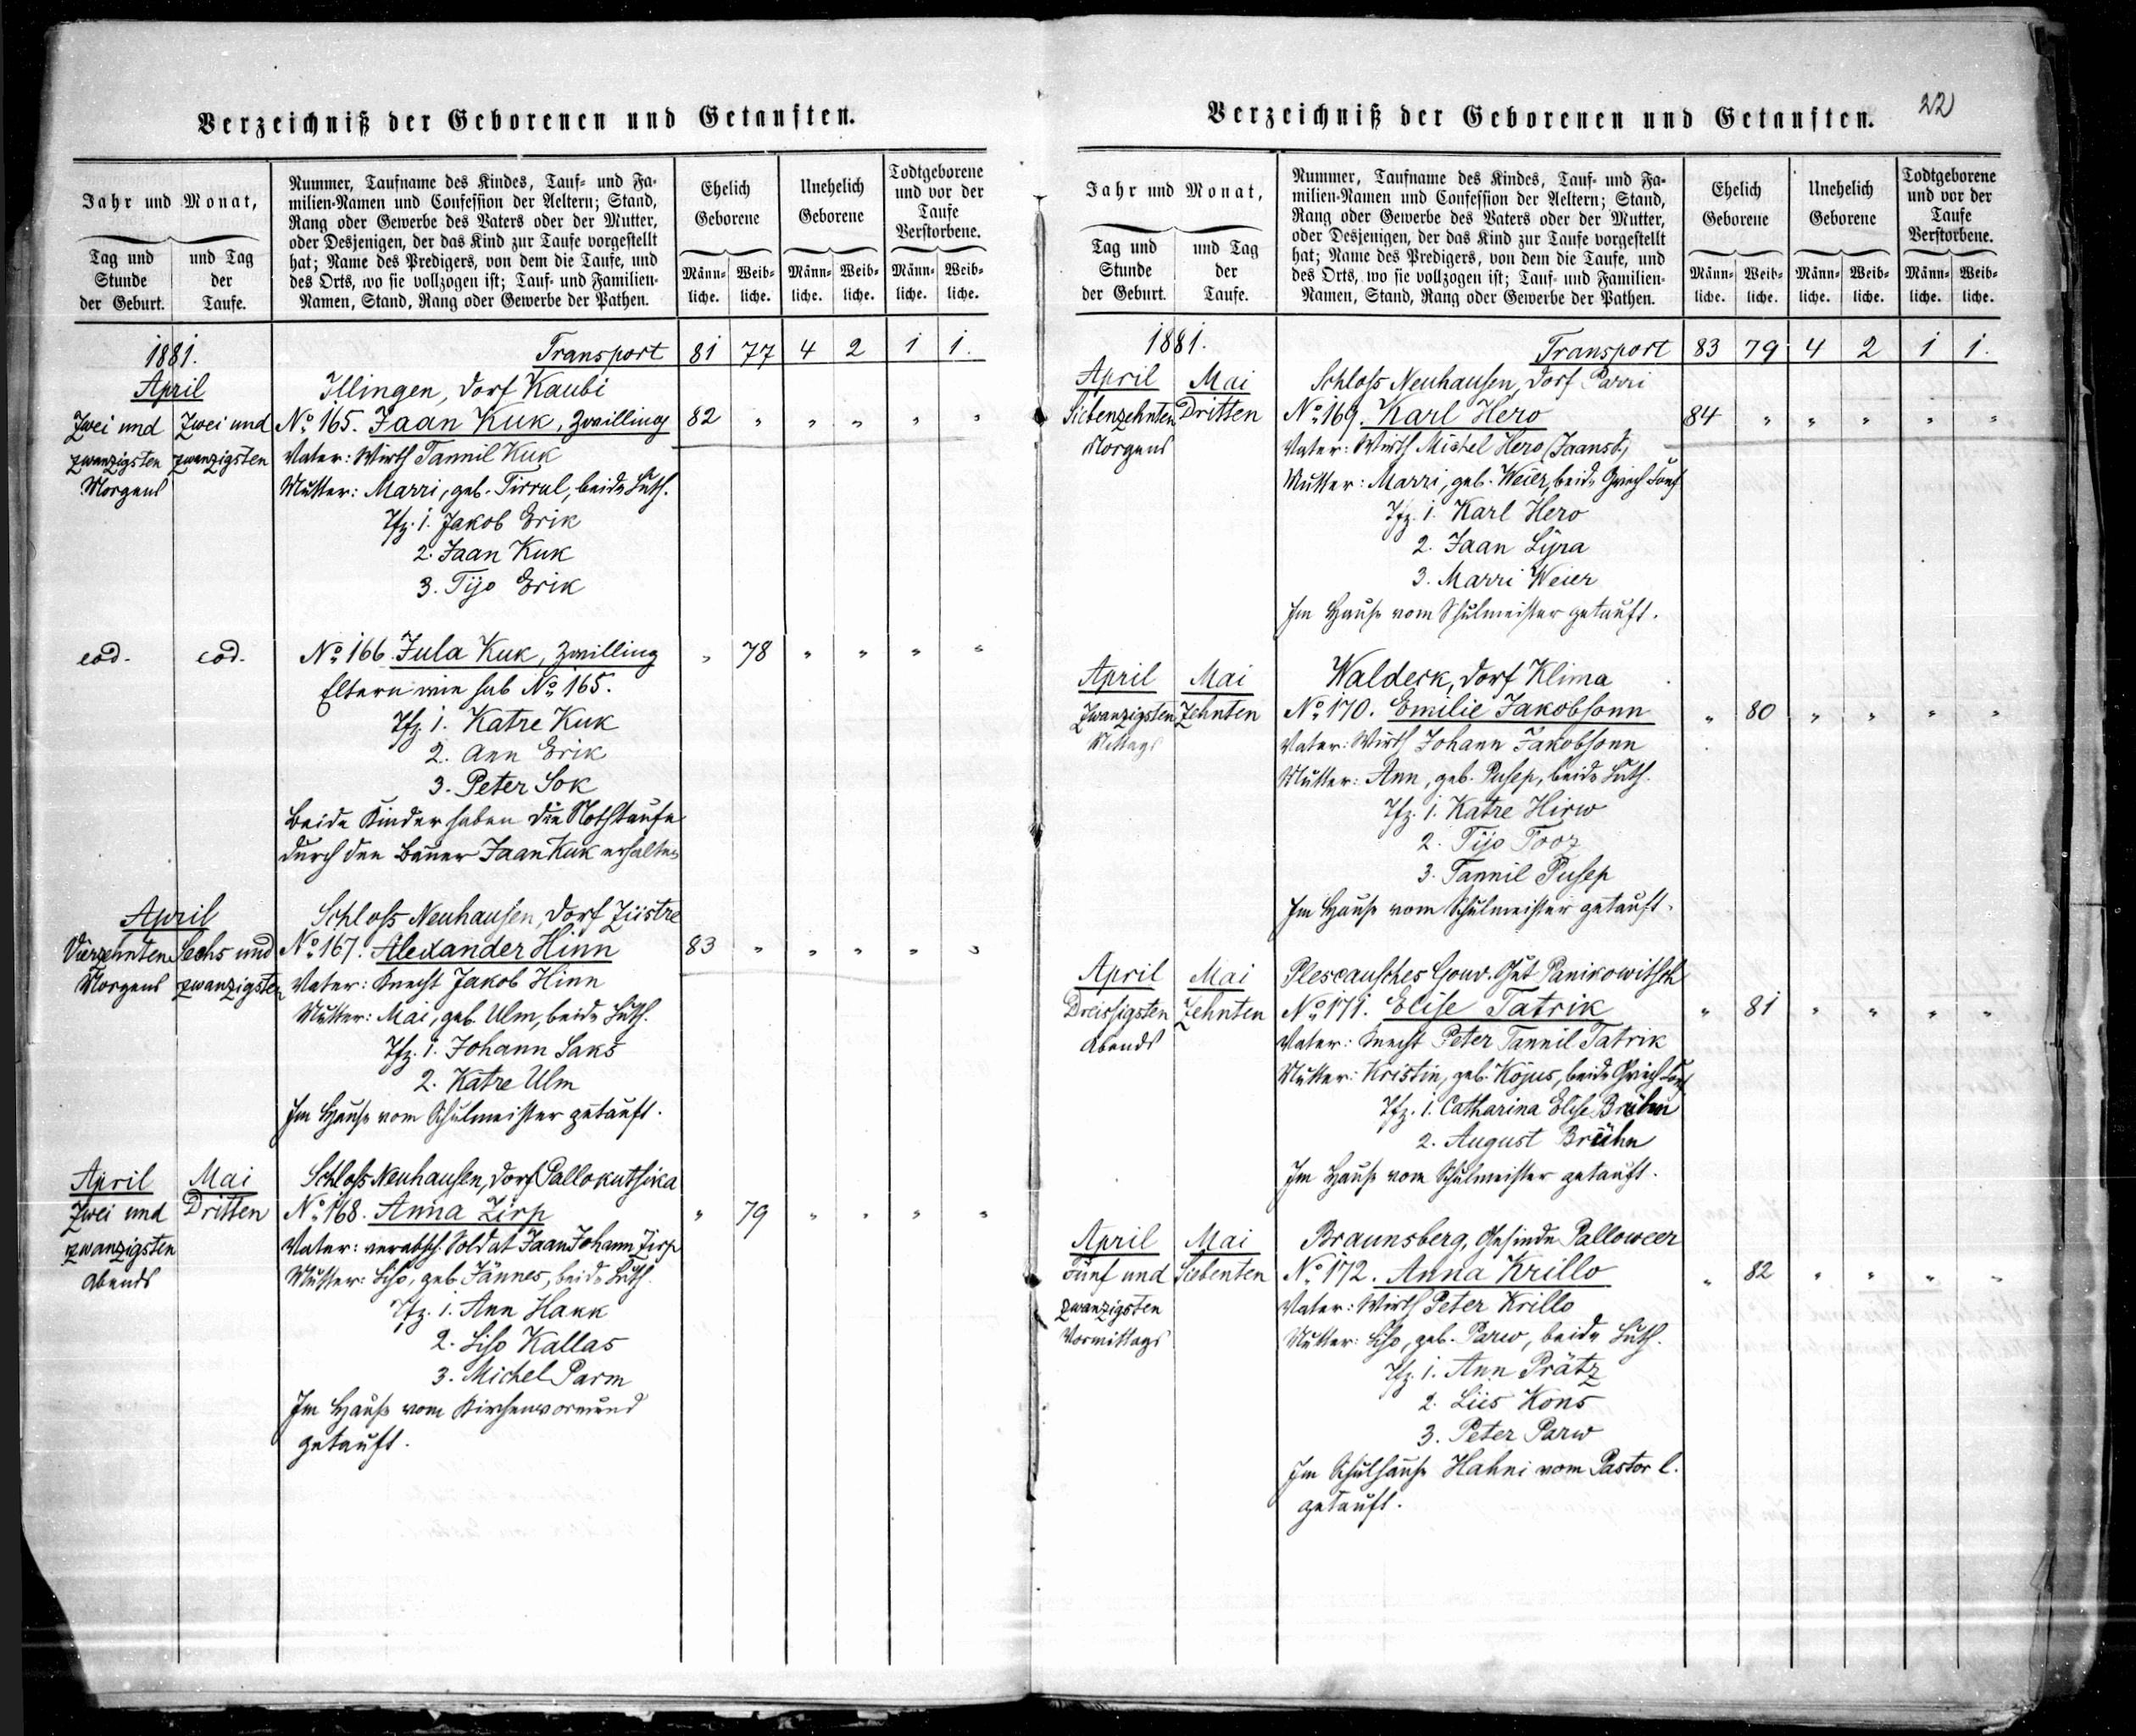 Verzeichniß der Geborenen und Getauften.
Jahr und Monat,
Tag und Stunde der Geburt.
und Tag der Taufe.
Nummer, Taufname des Kindes, Tauf- und Fa-
milien-Namen und Confession der Aeltern; Stand,
Rang oder Gewerbe des Vaters oder der Mutter,
oder Desjenigen, der das Kind zur Taufe vorgestellt
hat; Name des Predigers, von dem die Taufe, und
des Orts, wo sie vollzogen ist; Tauf- und Familien-
Namen, Stand, Rang oder Gewerbe der Pathen.
Ehelich Geborene
Unehelich Geborene
Todtgeborene und vor der Taufe Verstorbene.
Männ-liche. Weib-liche. Männ-liche. Weib-liche. Männ-liche. Weib-liche.
1881. Transport 81 77 4 2 1 1.
April Illingen, Dorf Kaubi
Zwei und Zwei und No. 165. Jaan Kuk, Zwilling 82 " " " " "
zwanzigsten zwanzigsten Vater: Wirth Tannil Kuk
Morgens Mutter: Marri, geb. Tirrul, beide Luth.
Tfz. 1. Jakob Erik
2. Jaan Kuk
3. Tijo Erik
eod. eod. No. 166. Jula Kuk, Zwilling " 78 " " " "
Eltern wie sub No. 165.
Tfz. 1. Katre Kuk
2. Ann Erik
3. Peter Sok
Beide Kinder haben die Nothtaufe
durch den Bauer Jaan Kuk erhalten
April Schloß Neuhausen, Dorf Züstre
Vierzehnten Sechs und No. 167. Alexander Hinn 83 " " " " "
Morgens zwanzigsten Vater: Knecht Jakob Hinn
Mutter: Mai, geb. Ulm, beide Luth.
Tfz. 1. Johann Saks
2. Katre Ulm
Im Hause vom Schulmeister getauft.
April Mai Schloß Neuhausen, Dorf Pallokutsika
Zwei und Dritten No. 168. Anna Zirp " 79 " " " "
zwanzigsten Vater: verabsch. Soldat Jaan Johann Zirp
Abends Mutter: Liso, geb. Jännes, beide Luth.
Tfz. 1. Ann Hakk
2. Liso Kallas
3. Michel Parm
Im Hause vom Kirchenvormund
getauft.
Verzeichniß der Geborenen und Getauften. 22
Jahr und Monat,
Tag und Stunde der Geburt.
und Tag der Taufe.
Nummer, Taufname des Kindes, Tauf- und Fa-
milien-Namen und Confession der Aeltern; Stand,
Rang oder Gewerbe des Vaters oder der Mutter,
oder Desjenigen, der das Kind zur Taufe vorgestellt
hat; Name des Predigers, von dem die Taufe, und
des Orts, wo sie vollzogen ist; Tauf- und Familien-
Namen, Stand, Rang oder Gewerbe der Pathen.
Ehelich Geborene
Unehelich Geborene
Todtgeborene und vor der Taufe Verstorbene.
Männ-liche. Weib-liche. Männ-liche. Weib-liche. Männ-liche. Weib-liche.
1881. Transport 83 79 4 2 1 1.
April Mai Schloß Neuhausen, Dorf Parri
Siebenzehnten Dritten No. 169. Karl Hero 84 " " " " "
Morgens Vater: Wirth Michel Hero (Jaans S.)
Mutter: Marri, geb. Weier, beide Griech. Conf.
Tfz. 1. Karl Hero
2. Jaan Lÿra
3. Marri Weier
Im Hause vom Schulmeister getauft.
April Mai Waldeck, Dorf Klima
Zwanzigsten Zehnten No. 170. Emilie Jakobsonn " 80 " " " "
Mittags Vater: Wirth Johann Jakobsonn
Mutter: Ann, geb. Pusep, beide Luth.
Tfz. 1. Katre Hirw
2. Tijo Tooz
3. Tannil Pusep
Im Hause vom Schulmeister getauft.
April Mai Plescausches Gouv. Gut Panikowitsch
Dreissigsten Zehnten No. 171. Elise Tatrik " 81 " " " "
Abends Vater: Knecht Peter Tannil Tatrik
Mutter: Kristin, geb. Kojus, beide Griech. Conf.
Tfz. 1. Catharina Elise Brühn
2. August Brühn
Im Hause vom Schulmeister getauft.
April Mai Braunsberg, Gesinde Palloweer
Fünf und Siebenten No. 172. Anna Krillo " 82 " " " "
zwanzigsten Vater: Wirth Peter Krillo
Vormittags Mutter: Liso, geb. Parw, beide Luth.
Tfz. 1. Ann Prätz
2. Liis Kons
3. Peter Parw
Im Schulhause Hahni vom Pastor l.
getauft.